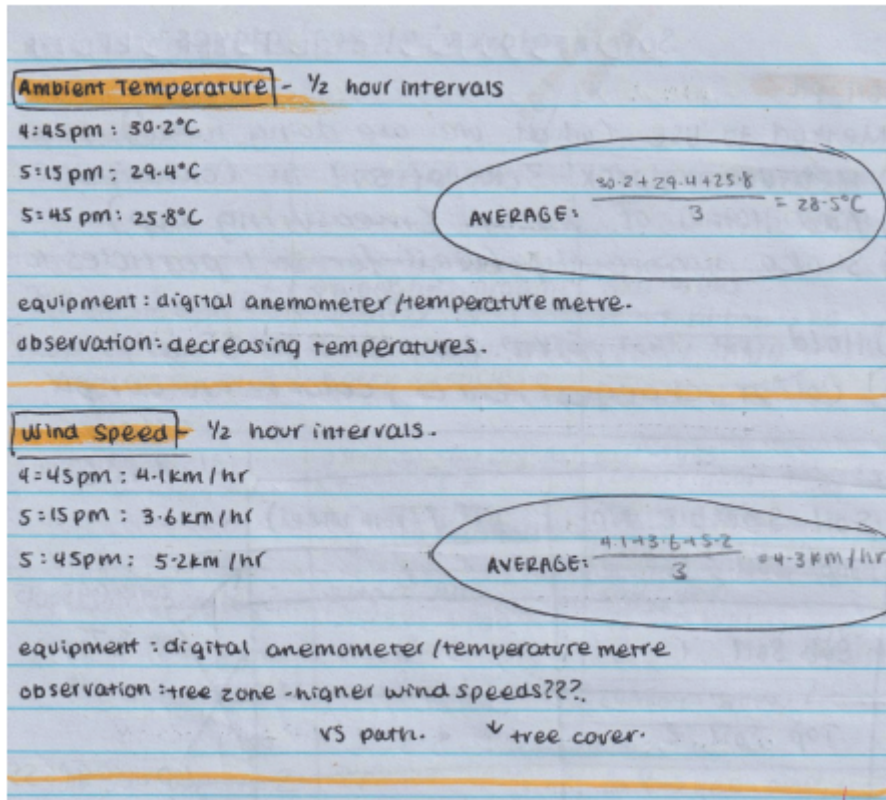 Ambient Temperature - ½ hour intervals
4:45pm: 30.2°C
5:15pm: 29.4°C
5:45pm: 25.8°C
AVERAGE: 30.2+29.4+25.8
3
= 28.5°C
equipment: digital anemometer/temperature metre.
observation: decreasing temperatures.
Wind Speed - ½ hour intervals.
4:45pm: 4.1km/hr
5:15pm: 3.6km/hr
5:45pm: 5.2km/hr
AVERAGE: 4.1+3.6+5.2
3
= 4.3km/hr
equipment: digital anemometer/temperature metre
observation: tree zone - higher wind speeds???
vs path. ↓ tree cover.